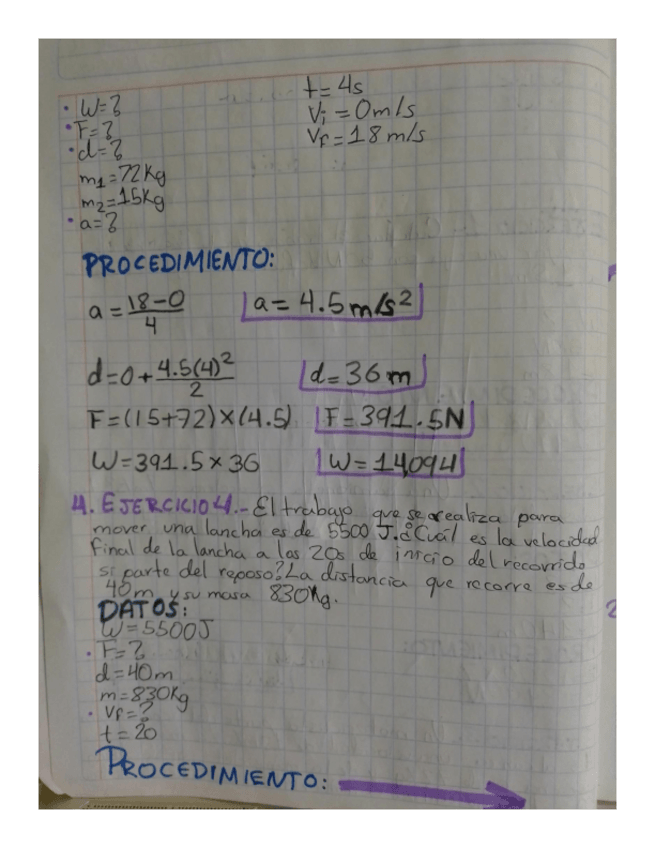 • W=?
t=4s
• F=?
Vi=0m/s
• d=?
Vf=18m/s
m1=72Kg
m2=15Kg
• a=?
PROCEDIMIENTO:
a=18-0/4 a=4.5m/s²
d=0+4.5(4)²/2 d=36m
F=(15+72)×(4.5) F=391.5N
W=391.5×36 W=14,094J
4. EJERCICIO 4.- El trabajo que se realiza para
mover una lancha es de 5500 J. ¿Cuál es la velocidad
final de la lancha a los 20s de inicio del recorrido
si parte del reposo? La distancia que recorre es de
40m y su masa 830Kg.
DATOS:
W=5500J
• F=?
d=40m
m=830Kg
• Vf=?
t=20
PROCEDIMIENTO: